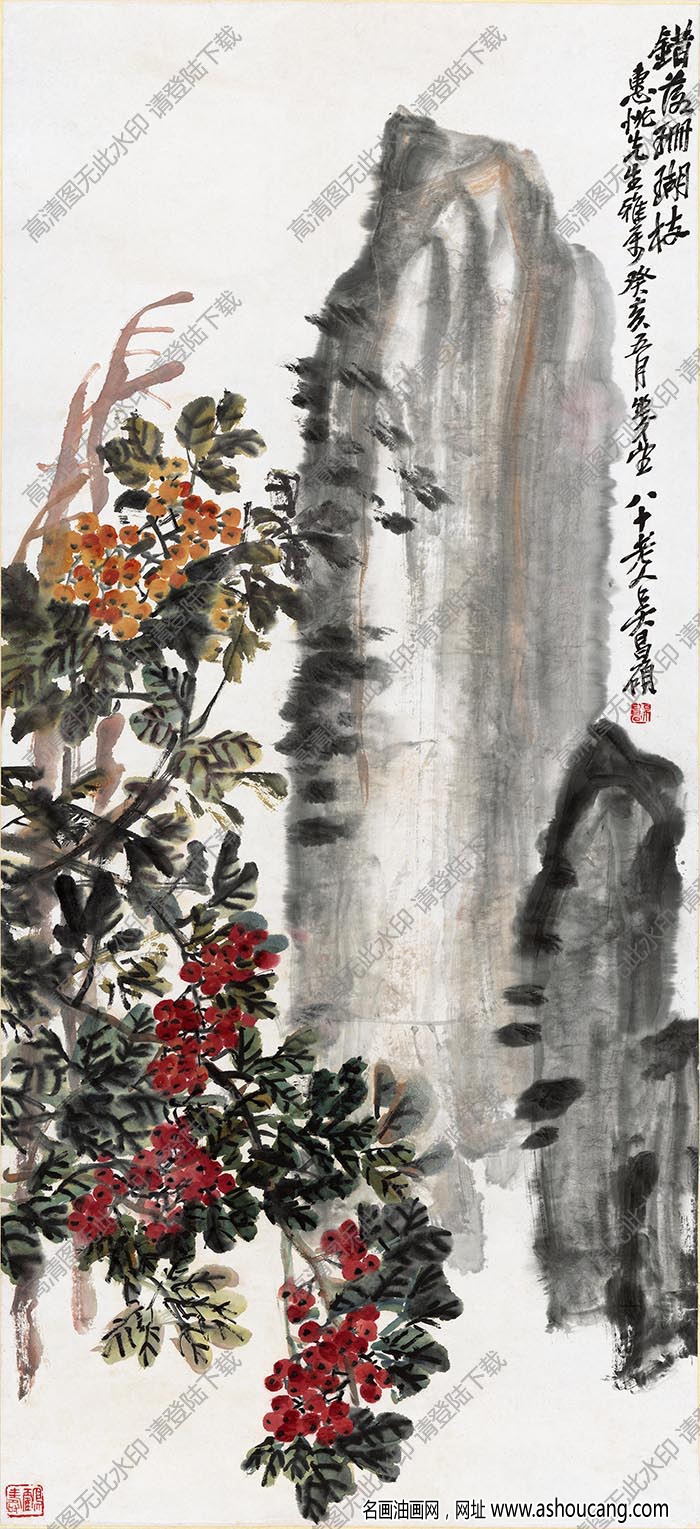 錯落珊瑚枝
先生雅系癸亥五月
八十老人吳昌碩
高清图无此水印 请登陆下载
名画油画网，网址 www.ashoucang.com